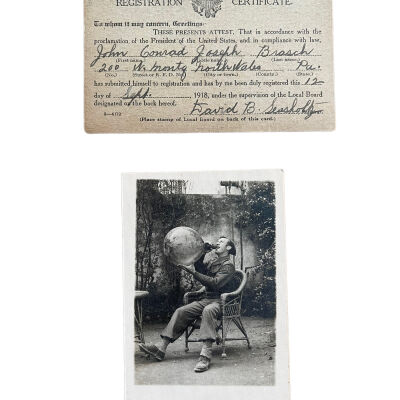 REGISTRATION CERTIFICATE.
To whom it may concern, Greetings:
THESE PRESENTS ATTEST, That in accordance with the
proclamation of the President of the United States, and in compliance with law,
John Conrad Joseph Brasch
(First name) (Middle name) (Last name)
200 W. Montg North Wales Pa.
(No.) (Street or R. F. D. No.) (City or town) (County) (State)
has submitted himself to registration and has by me been duly registered this 12
day of Sept. 1918, under the supervision of the Local Board
designated on the back hereof.
David B.
(Place stamp of Local Board on back of this card.)